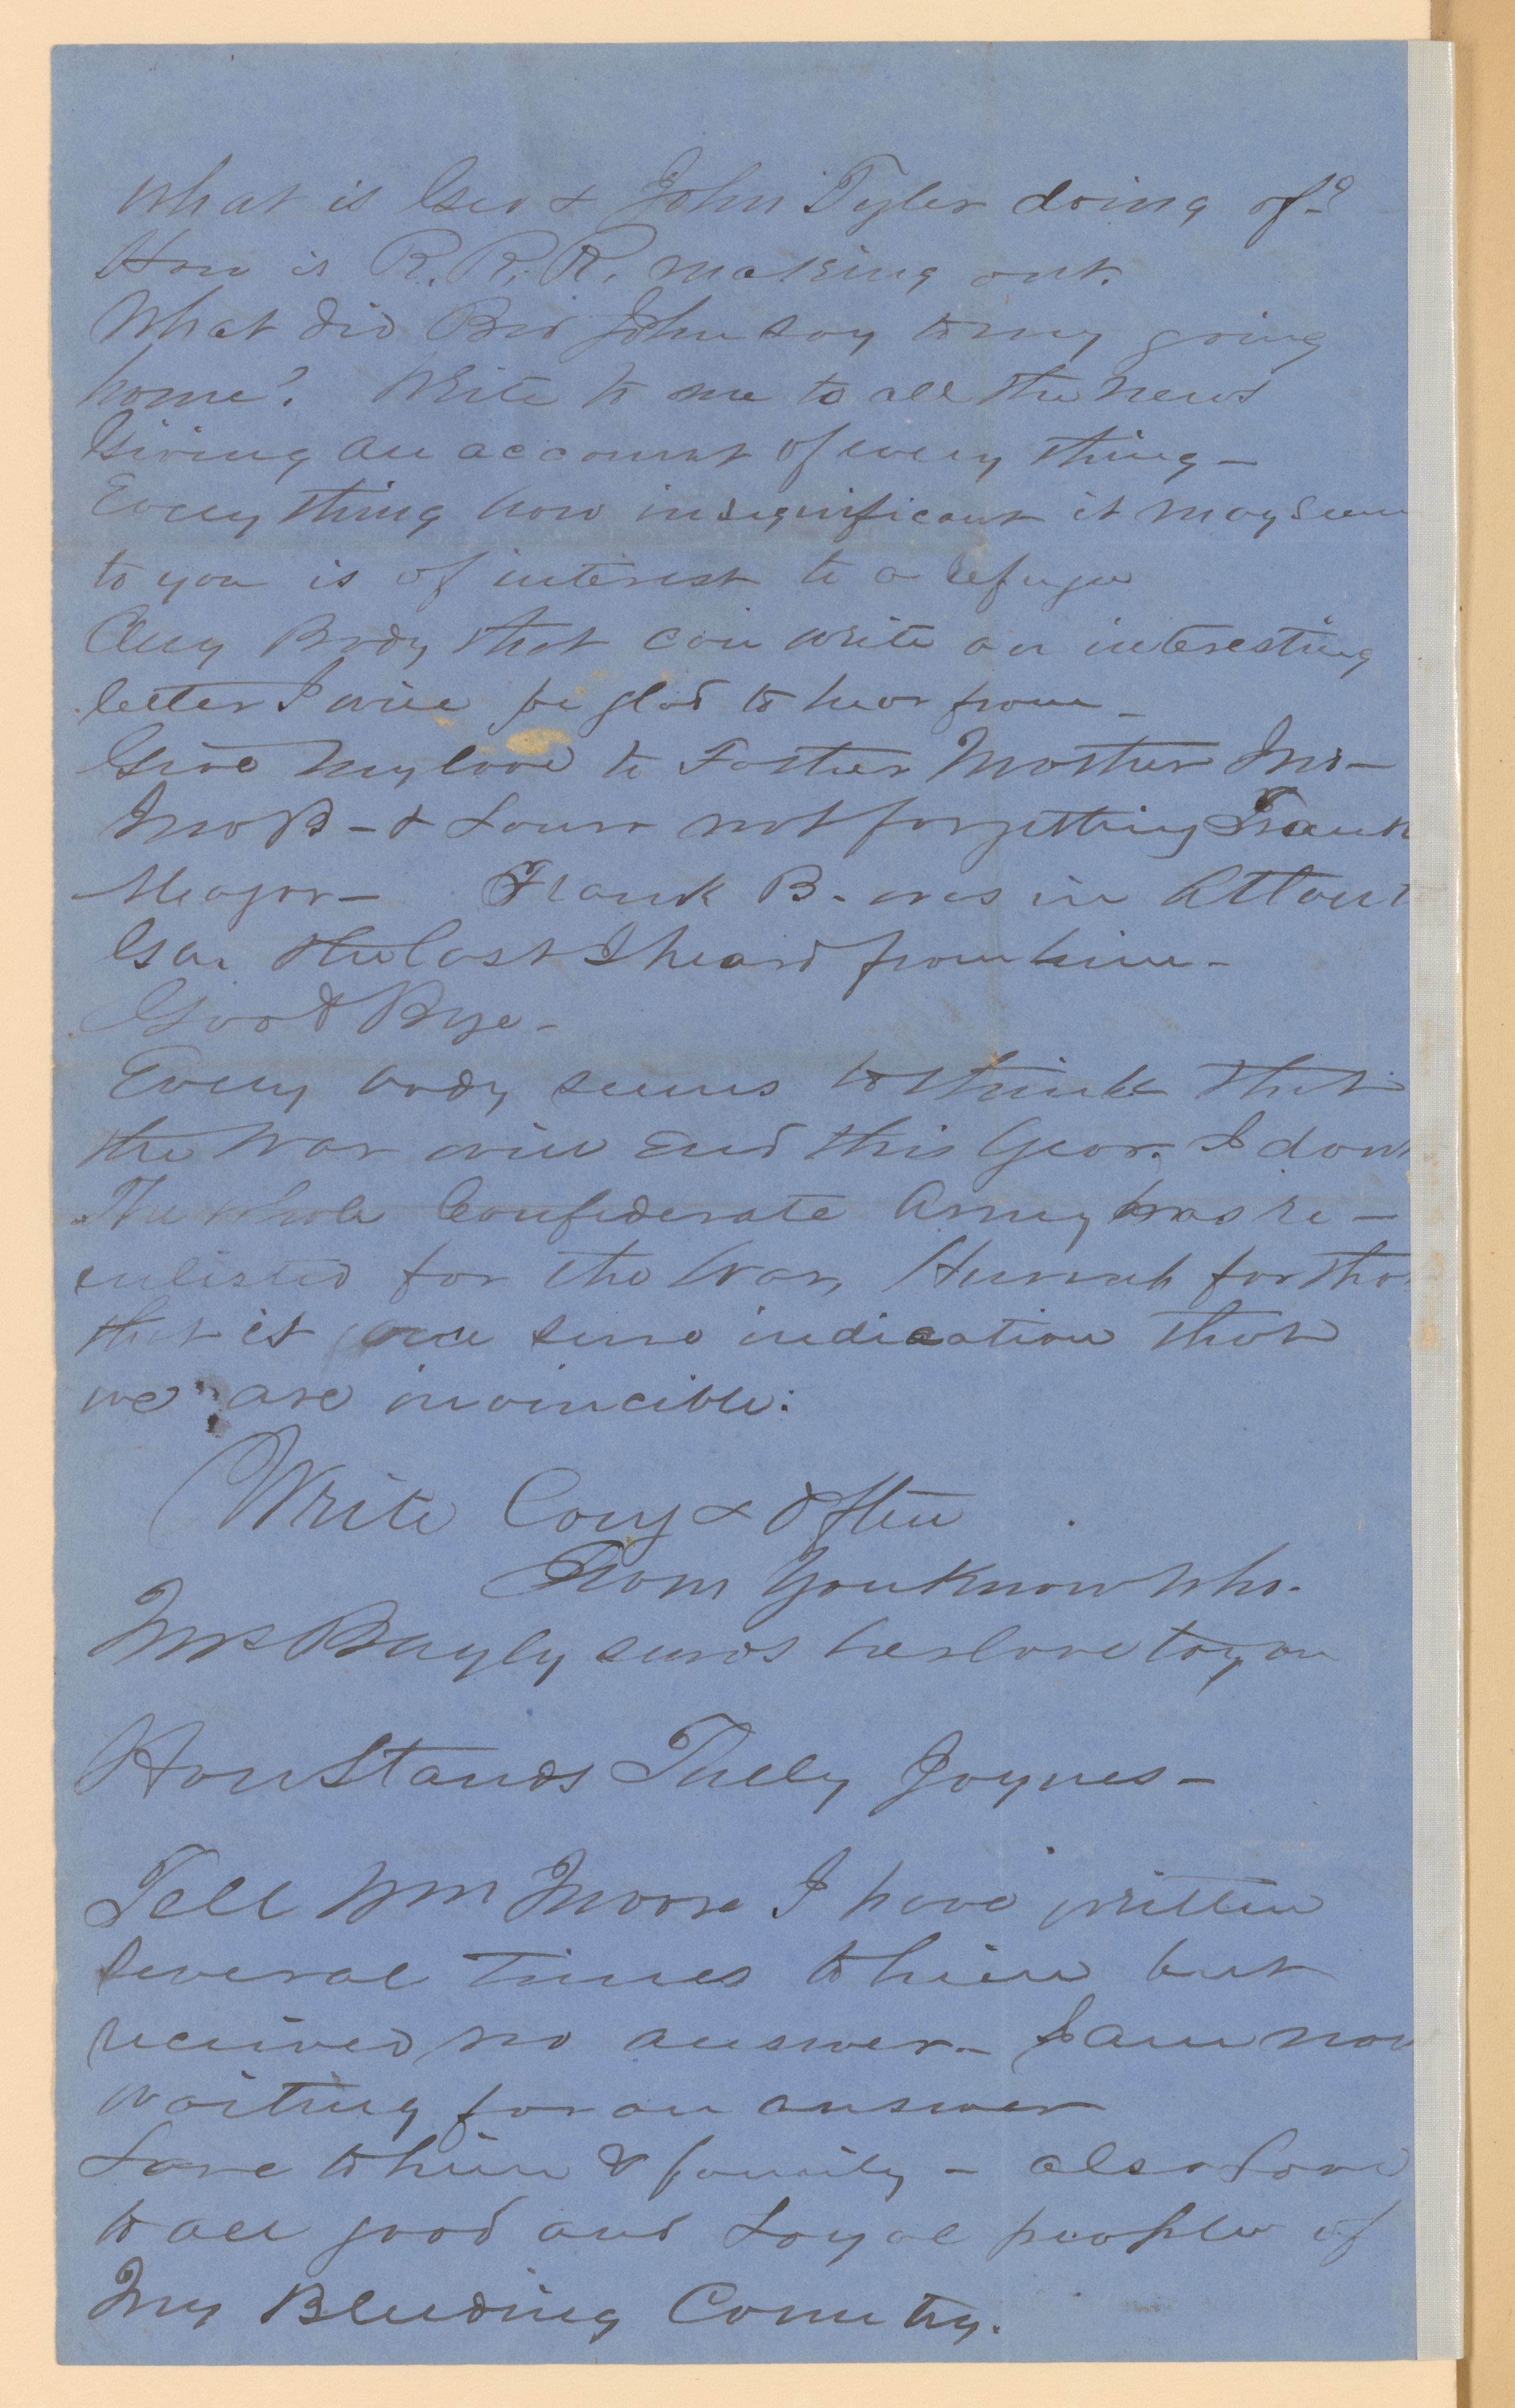 What is Geo & John Tyler doing of?
How is R. R. R. making out.
What did Bro John say to my going
home? Write to me to all the news
Giving an account of every thing—
Every thing how insignificant it may seem
to you is of interest to a refugee
Any Body that can write an interesting
letter I will be glad to hear from—
Give my love to Father Mother
B— & Laura not forgetting Frank
Major— Frank B. was in Atlant
Ga. the last I heard from him—
Good Bye—
Every body seems to think that
the War will End this Year. I dont
The whole Confederate Army has re—
enlisted for the War, Hurrah for that
that is one sure indication that
we are invincible:
Write Long & Often
From You Know Who.
Mrs Bayly sends her love to you
How Stands Tully Joynes—
Tell Wm Moore I have written
several times to him but
received no answer— I am now
waiting for an answer
Love to him & family— also Love
to all good and Loyal people of
My Bleeding Country.